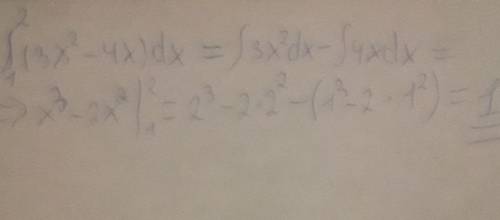 ∫₁² (3x² - 4x) dx = ∫3x²dx - ∫4xdx =
⇒ x³ - 2x² |₁² = 2³ - 2·2² - (1³ - 2·1²) = 1